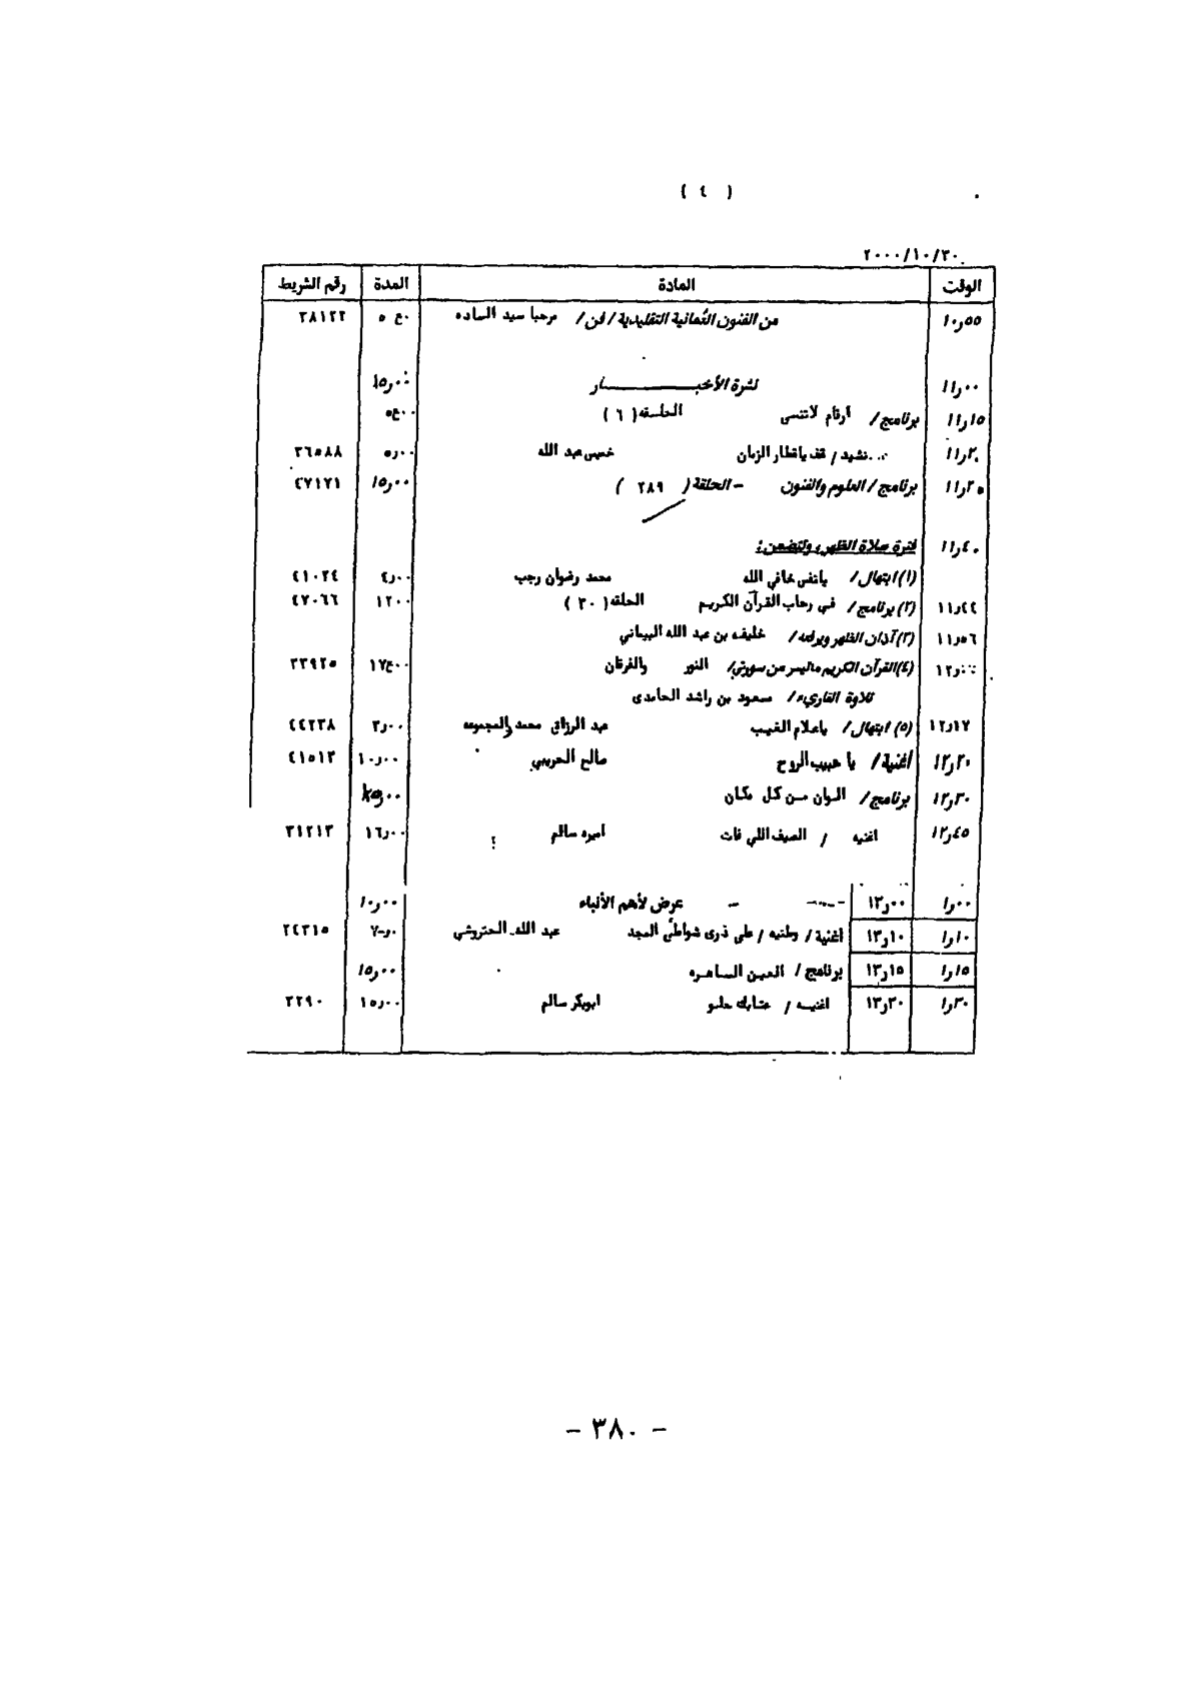 ( ٤ )
٢٠٠٠/١٠/٣٠
الوقت المادة المدة رقم الشريط
١٠ر٥٥ من الفنون العُمانية التقليدية / فن / مرحبا سيد الساده ٣٨١٢٢
١١ر٠٠ نشرة الأخبـــــــار ١٥ر٠٠
١١ر١٥ برنامج / أرقام لاتنسى الحلسقه ( ٦ )
١١ر٢٠ نشيد / قف ياقطار الزمان خميس عبد الله ٥ر٠٠ ٣٦٥٨٨
١١ر٢٥ برنامج / العلوم والفنون – الحلقة ( ٢٨٩ ) ١٥ر٠٠ ٤٧١٢١
١١ر٤٠ فترة صلاة الظهر ، وتتضمن :
(١) ابتهال / يانفس خافي الله محمد رضوان رجب ٤ر٠٠ ٤١٠٢٤
١١ر٤٤ (٢) برنامج / في رحاب القرآن الكريم الحلقه ( ٣٠ ) ١٢٠٠ ٤٧٠٦٦
١١ر٥٦ (٣) آذان الظهر ويرفعه / خليفه بن عبد الله اليماني
١٢ر٠٠ (٤) القرآن الكريم ماتيسر من سورتي / النور والفرقان ١٧ ٣٣٩٢٥
تلاوة القاريء / سعود بن راشد الحامدي
١٢ر١٧ (٥) ابتهال / ياعلام الغيب عبد الرزاق محمد والمجموعه ٣ر٠٠ ٤٤٢٣٨
١٢ر٢٠ أغنية / يا حبيب الروح صالح الحريبي ١٠ر٠٠ ٤١٥١٣
١٢ر٣٠ برنامج / الـوان مـن كـل مكـان
١٢ر٤٥ اغنيه / الصيف اللي فات اميره سالم ١٦ر٠٠ ٣١٢١٣
١ر٠٠ ١٣ر٠٠ – عرض لأهم الأنباء ١٠ر٠٠
١ر١٠ ١٣ر١٠ اغنية / وطنيه / على ذرى شواطئ المجد عبد الله الحتروشي ٢٤٣١٥
١ر١٥ ١٣ر١٥ برنامج / العيـن السـاهـره ١٥ر٠٠
١ر٣٠ ١٣ر٣٠ اغنيـه / عتابك حلـو ابوبكر سالم ١٥ر٠٠ ٢٢٩٠
– ٣٨٠ –